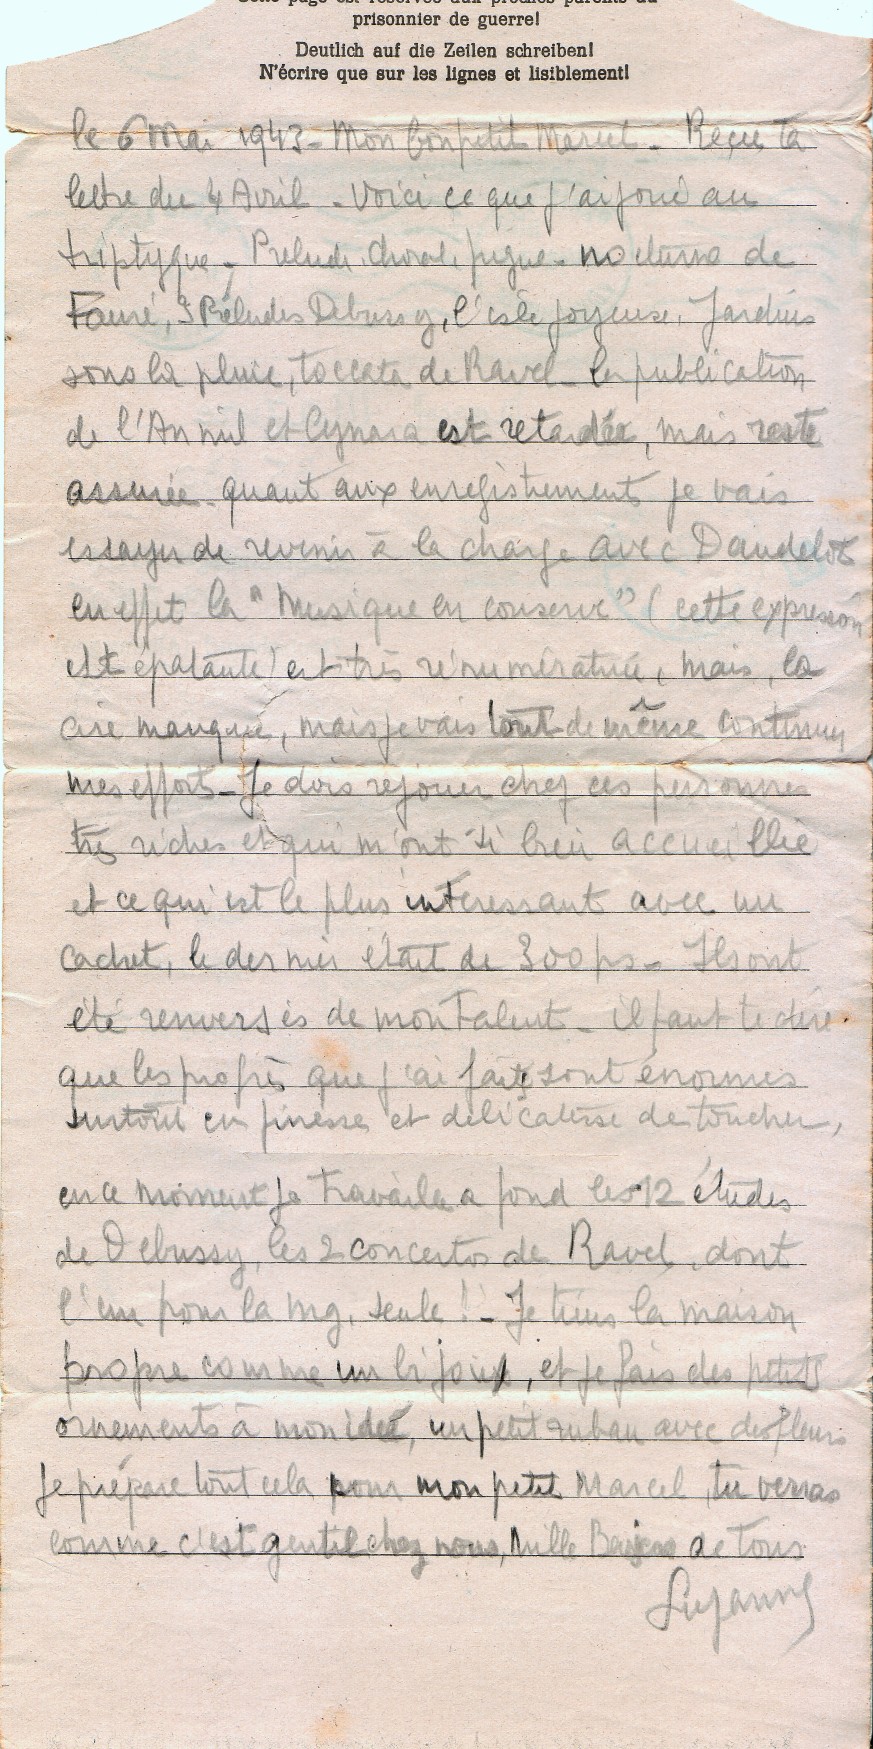 Cette page est réservée aux proches parents du
prisonnier de guerre!
Deutlich auf die Zeilen schreiben!
N'écrire que sur les lignes et lisiblement!
le 6 Mai 1943 - Mon bon petit Marcel - Reçu ta
lettre du 4 Avril - Voici ce que j'ai joué au
triptyque - Prelude, choral, fugue - nocturne de
Fauré, 3 Préludes Debussy, l'isle joyeuse, Jardins
sous la pluie, toccata de Ravel - la publication
de l'An mil et Cynara est retardée, mais reste
assurée - quant aux enregistrements je vais
essayer de revenir à la charge avec Dandelot
en effet la "Musique en conserve" (cette expression
est épatante) est très rénumératrice, mais, la
cire manque, mais je vais tout de même continuer
mes efforts - Je dois rejouer chez ces personnes
très riches et qui m'ont si bien accueillie
et ce qui est le plus intéressant avec un
cachet, le dernier était de 300 frs - Ils ont
été renversés de mon talent - il faut te dire
que les progrès que j'ai faits sont énormes
surtout en finesse et délicatesse de toucher,
en ce moment je travaille a fond les 12 études
de Debussy, les 2 concertos de Ravel, dont
l'un pour la mg. seule !! - Je tiens la maison
propre comme un bijou, et je fais des petits
ornements à mon idée, un petit ruban avec des fleurs
Je prépare tout cela pour mon petit Marcel, tu verras
comme c'est gentil chez nous, Mille Baisers de tous
Suzanne